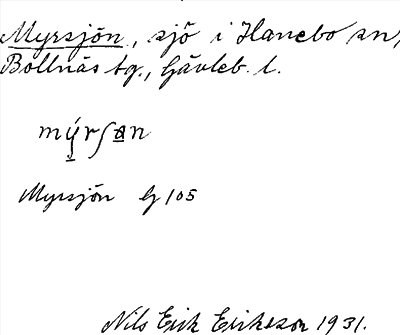 Myrsjön, sjö i Hanebo sn,
Bollnäs tg., Gävleb. l.
mýrʃan
Myrsjön G 105
Nils Erik Eriksson 1931.